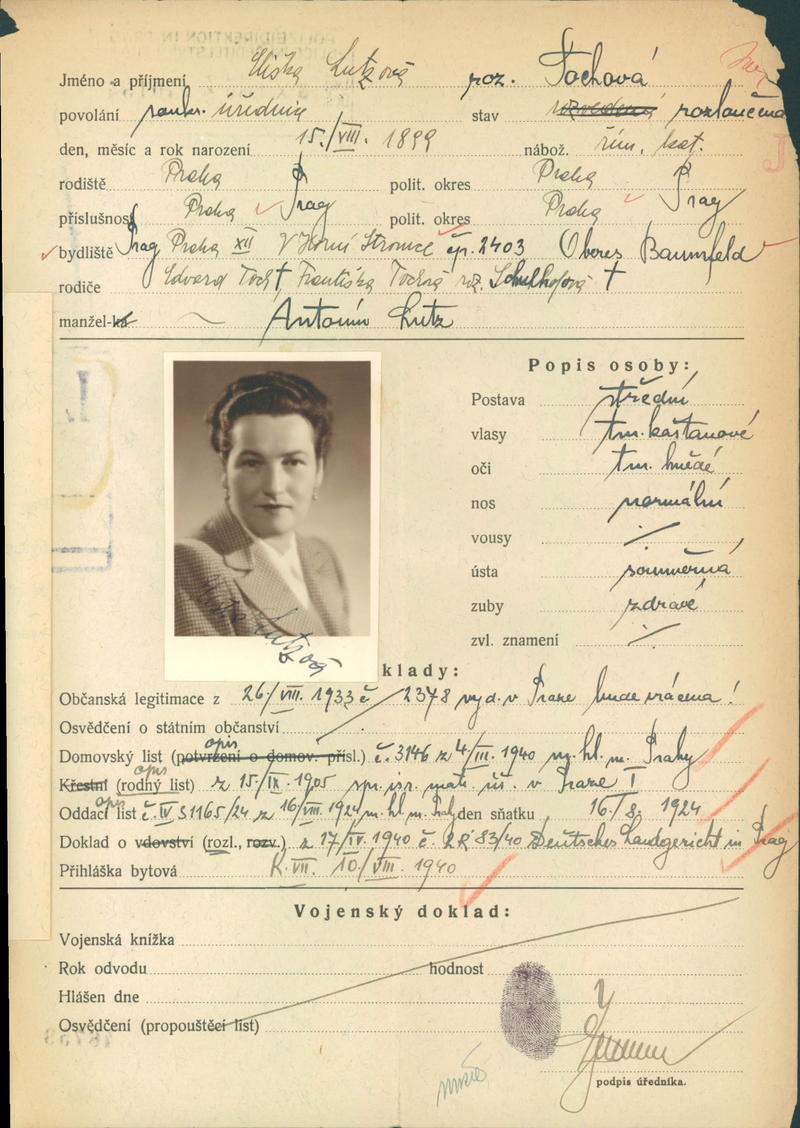 Jméno a příjmení Eliška Lutzová roz. Tochová
povolání soukr. úřednice stav rozvedená rozloučena
J
den, měsíc a rok narození 15./VIII. 1899 nábož. řím. kat.
rodiště Praha Prag polit. okres Praha Prag
příslušnost Praha polit. okres Praha
bydliště Prag Praha XII V Horní Stromce čp. 2403 Oberes Baumfeld
rodiče Edvard Toch †, Františka Tochová roz. Schulhofová †
manžel-ka Antonín Lutz
Popis osoby:
Postava střední
vlasy tm. kaštanové
oči tm. hnědé
nos normální
vousy
ústa souměrná
zuby zdravé
zvl. znamení
Lutzová
klady:
Občanská legitimace z 26./VIII. 1933 č 2378 vyd. v Praze bude vrácena!
Osvědčení o státním občanství
Domovský list (potvrzení o domov. přísl.) opis č. 3146 z 4/III. 1940 m. hl. m. Prahy
Křestní (rodný list) opis z 15/IX. 1905 spr. isr. mat. úř. v Praze I
Oddací list opis č. IV 31165/24 z 16/VIII. 1924 m. hl. m. Prahy den sňatku 16./8. 1924
Doklad o vdovství (rozl., rozv.) z 17/IV. 1940 č. 2R 83/40 Deutsches Landgericht in Prag
Přihláška bytová K. VII. 10./VIII. 1940
Vojenský doklad:
Vojenská knížka
Rok odvodu hodnost
Hlášen dne
Osvědčení (propouštěcí list)
podpis úředníka.